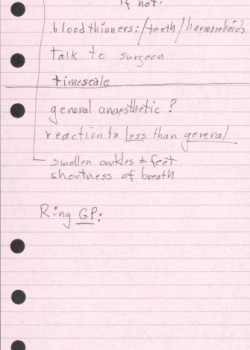 if not:
bloodthinners:/teeth/haemorrhoids
talk to surgeon
timescale
general anaesthetic?
reaction to less than general
swollen ankles + feet
shortness of breath
Ring GP: